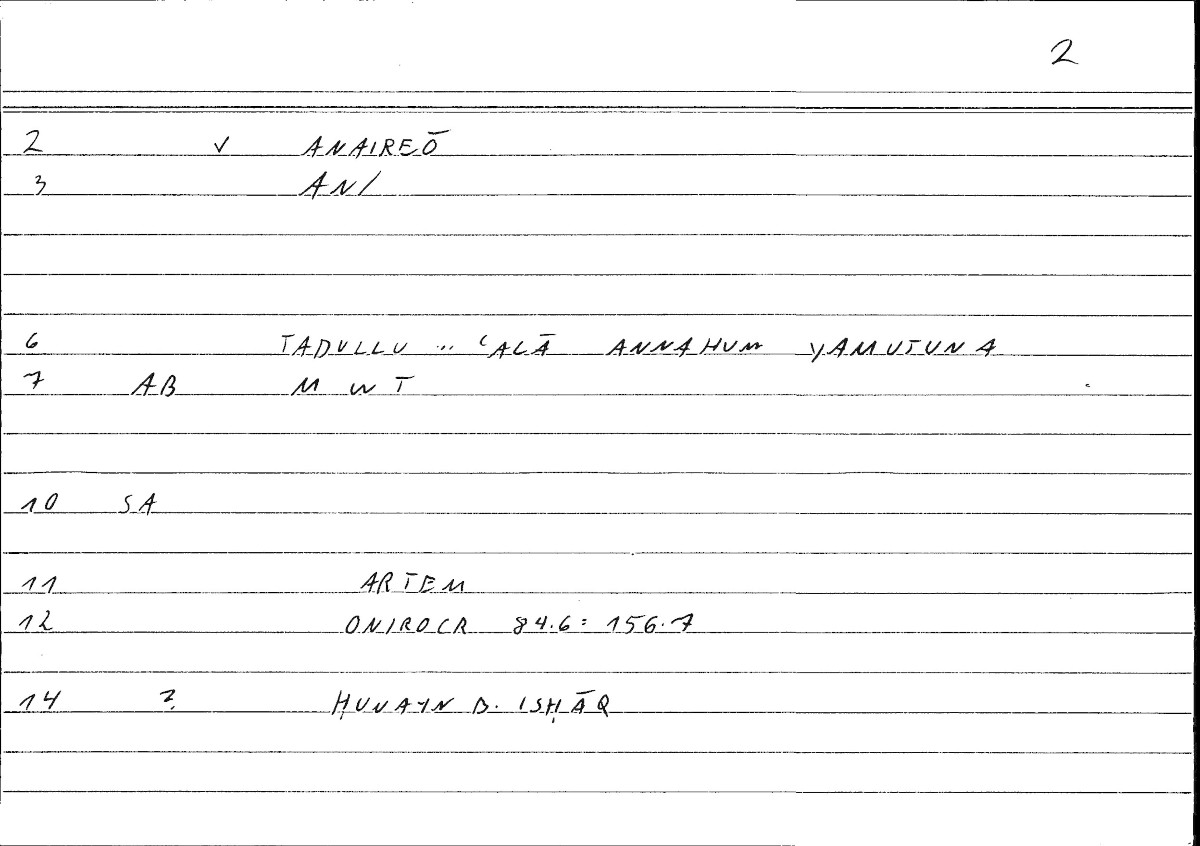 2
2 √ ANAIREŌ
3 AN/
6 TADULLU .. ʿALĀ ANNAHUM YAMUTUNA
7 AB M W T
10 SA
11 ARTEM
12 ONIROCR 84.6 = 156.7
14 ? ḤUNAYN B. ISḤĀQ